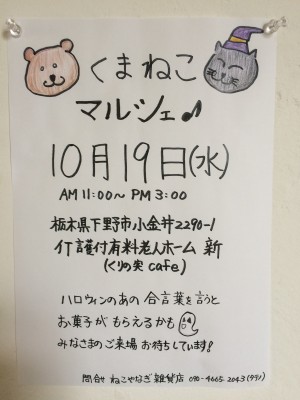 くまねこ
マルシェ♪
10月19日(水)
AM 11:00~PM 3:00
栃木県下野市小金井2290-1
介護付有料老人ホーム 新
(くりの実 cafe)
ハロウィンのあの 合言葉を言うと
お菓子が もらえるかも
みなさまのご来場 お待ちしています!
問合せ ねこやなぎ雑貨店 090-4665-2043